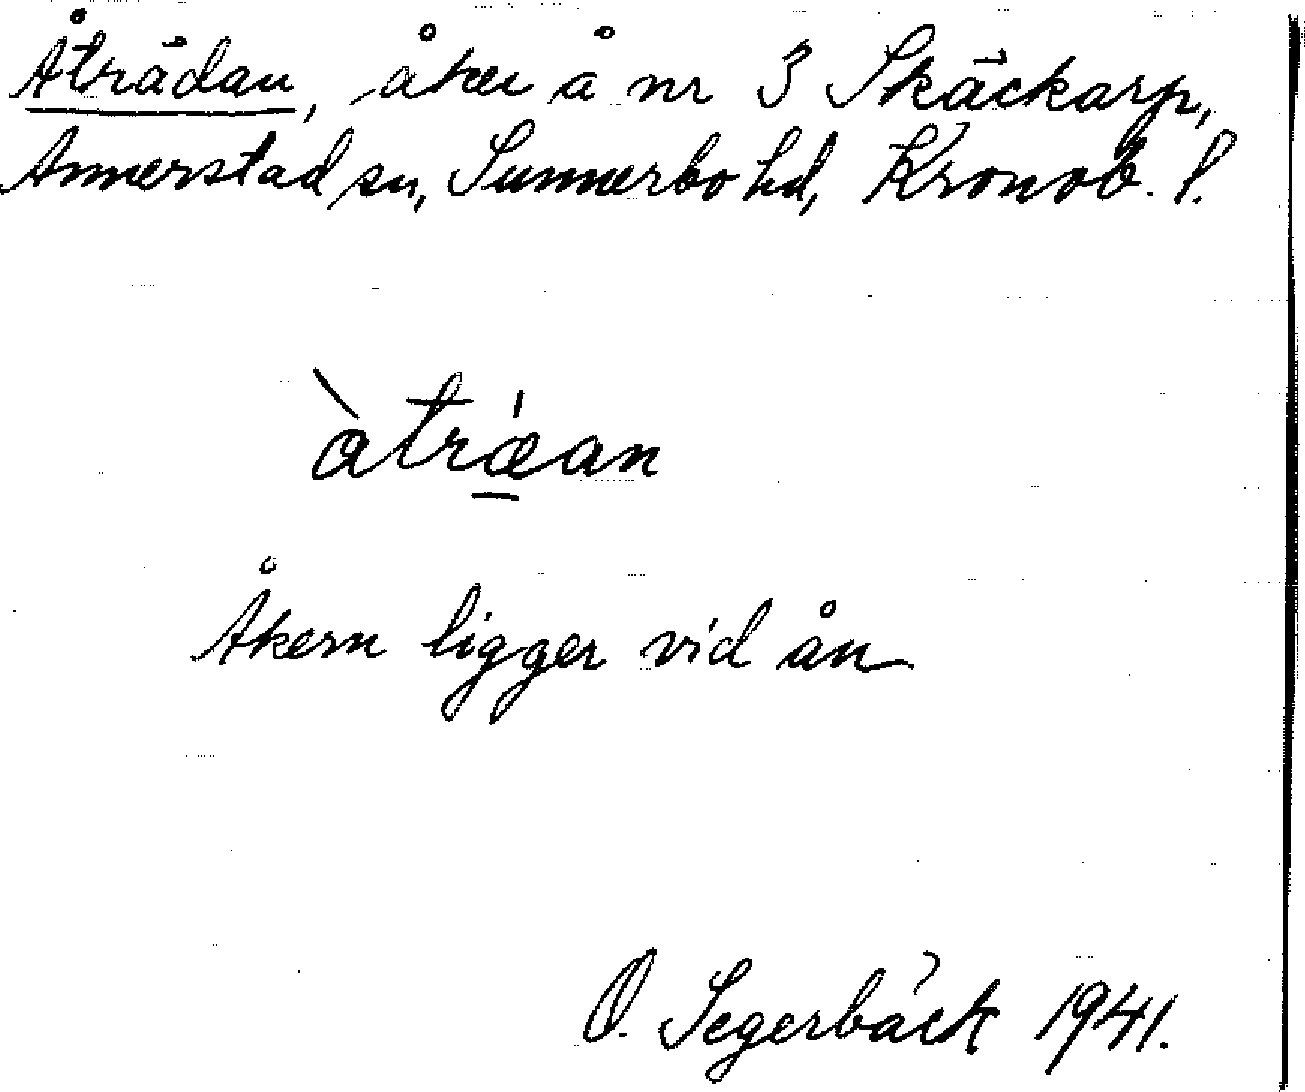 Åträdan, åker å nr 3 Skäckarp,
Annerstad sn, Sunnerbo hd, Kronob. l.
àtrǽ̱an
Åkern ligger vid ån
O. Segerbäck 1941.